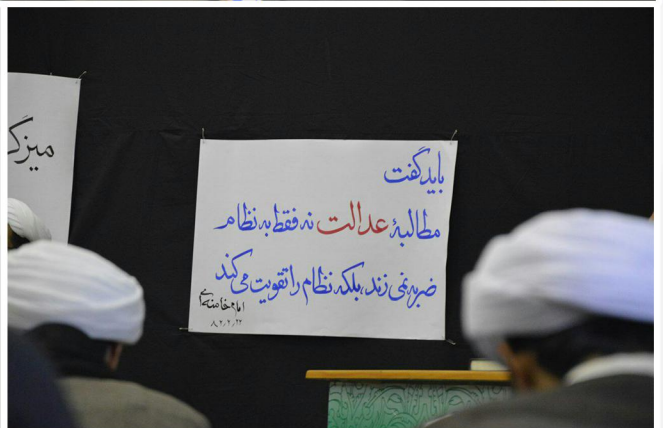 باید گفت
مطالبهٔ عدالت نه فقط به نظام
ضربه نمی زند، بلکه نظام را تقویت می کند
امام خامنه ای
۸۲/۲/۲۲
میزگ